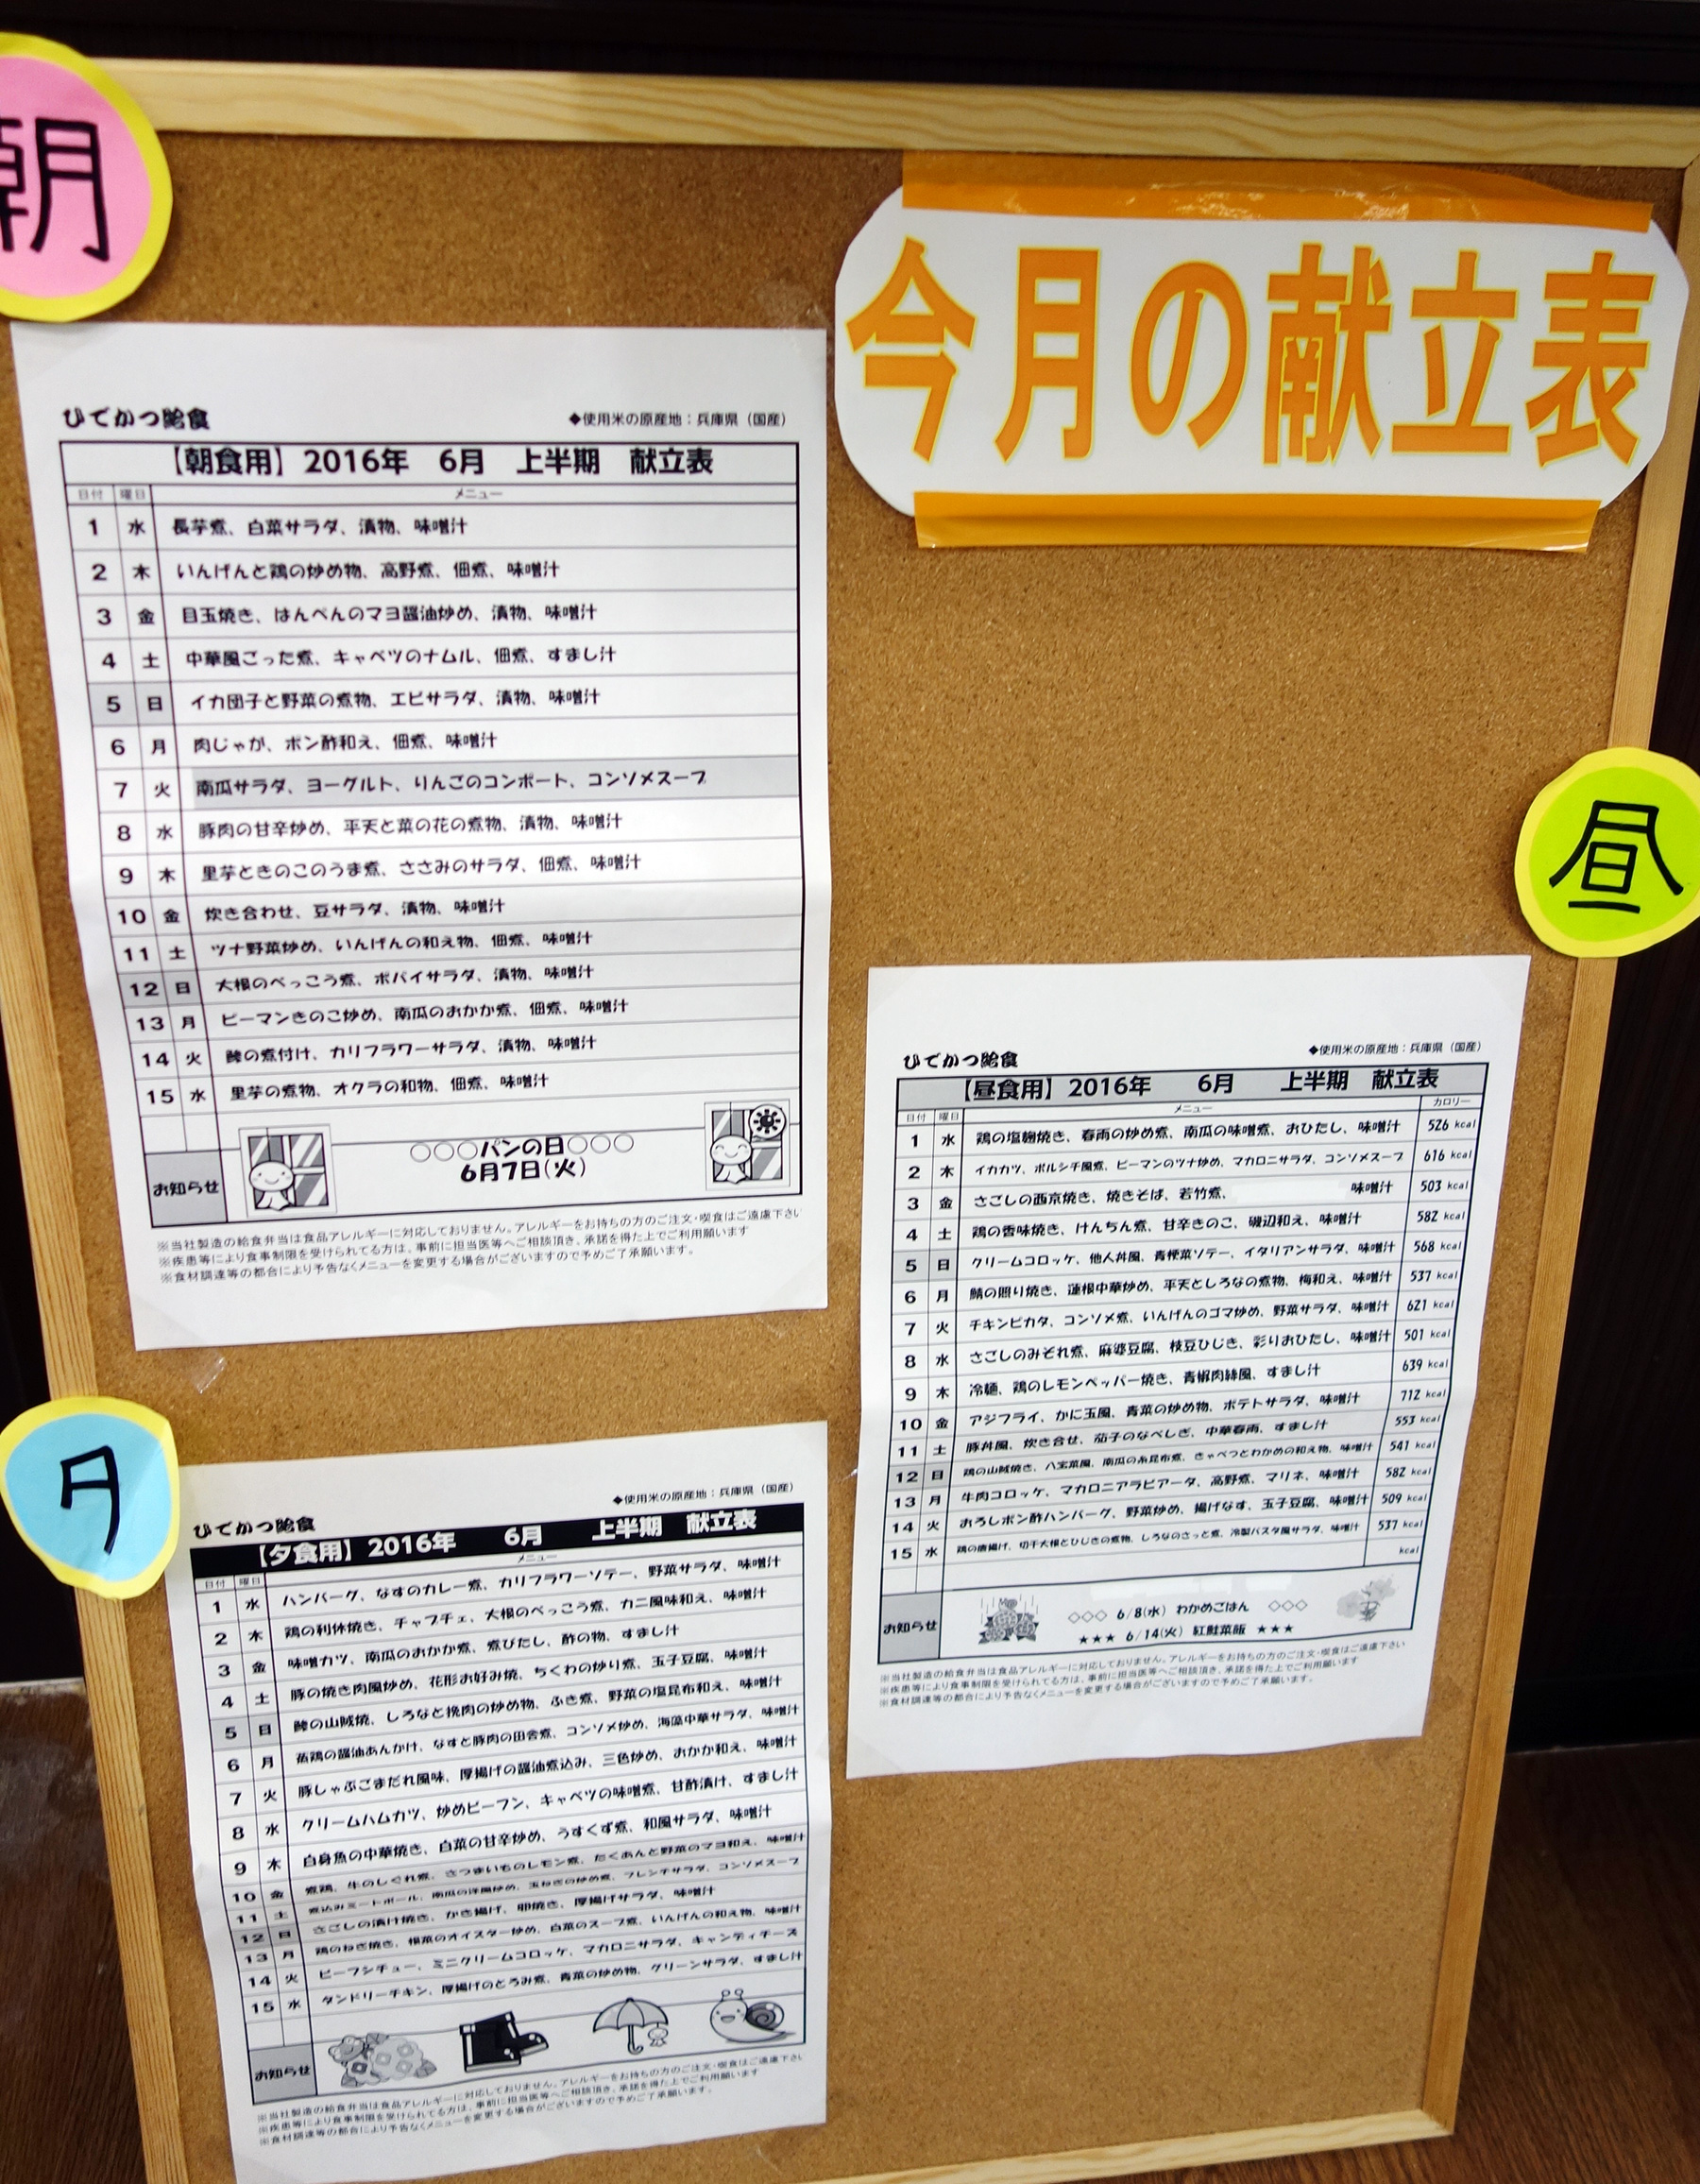 朝
今月の献立表
ひでかつ給食 ◆使用米の原産地：兵庫県（国産）
【朝食用】2016年 6月 上半期 献立表
日付 曜日 メニュー
1 水 長芋煮、白菜サラダ、漬物、味噌汁
2 木 いんげんと鶏の炒め物、高野煮、佃煮、味噌汁
3 金 目玉焼き、はんぺんのマヨ醤油炒め、漬物、味噌汁
4 土 中華風ごった煮、キャベツのナムル、佃煮、すまし汁
5 日 イカ団子と野菜の煮物、エビサラダ、漬物、味噌汁
6 月 肉じゃが、ポン酢和え、佃煮、味噌汁
7 火 南瓜サラダ、ヨーグルト、りんごのコンポート、コンソメスープ
8 水 豚肉の甘辛炒め、平天と菜の花の煮物、漬物、味噌汁
9 木 里芋ときのこのうま煮、ささみのサラダ、佃煮、味噌汁
10 金 炊き合わせ、豆サラダ、漬物、味噌汁
11 土 ツナ野菜炒め、いんげんの和え物、佃煮、味噌汁
12 日 大根のべっこう煮、ポパイサラダ、漬物、味噌汁
13 月 ピーマンきのこ炒め、南瓜のおかか煮、佃煮、味噌汁
14 火 鰺の煮付け、カリフラワーサラダ、漬物、味噌汁
15 水 里芋の煮物、オクラの和物、佃煮、味噌汁
お知らせ
○○○パンの日○○○
6月7日(火)
※当社製造の給食弁当は食品アレルギーに対応しておりません。アレルギーをお持ちの方のご注文・喫食はご遠慮下さい
※疾患等により食事制限を受けられてる方は、事前に担当医等へご相談頂き、承諾を得た上でご利用願います
※食材調達等の都合により予告なくメニューを変更する場合がございますので予めご了承願います。
昼
ひでかつ給食 ◆使用米の原産地：兵庫県（国産）
【昼食用】2016年 6月 上半期 献立表
日付 曜日 メニュー カロリー
1 水 鶏の塩麹焼き、春雨の炒め煮、南瓜の味噌煮、おひたし、味噌汁 526 kcal
2 木 イカカツ、ポルシチ風煮、ピーマンのツナ炒め、マカロニサラダ、コンソメスープ 616 kcal
3 金 さごしの西京焼き、焼きそば、若竹煮、 味噌汁 503 kcal
4 土 鶏の香味焼き、けんちん煮、甘辛きのこ、磯辺和え、味噌汁 582 kcal
5 日 クリームコロッケ、他人丼風、青梗菜ソテー、イタリアンサラダ、味噌汁 568 kcal
6 月 鯖の照り焼き、蓮根中華炒め、平天としろなの煮物、梅和え、味噌汁 537 kcal
7 火 チキンピカタ、コンソメ煮、いんげんのゴマ炒め、野菜サラダ、味噌汁 621 kcal
8 水 さごしのみぞれ煮、麻婆豆腐、枝豆ひじき、彩りおひたし、味噌汁 501 kcal
9 木 冷麺、鶏のレモンペッパー焼き、青椒肉絲風、すまし汁 639 kcal
10 金 アジフライ、かに玉風、青菜の炒め物、ポテトサラダ、味噌汁 712 kcal
11 土 豚丼風、炊き合せ、茄子のなべしぎ、中華春雨、すまし汁 553 kcal
12 日 鶏の山賊焼き、八宝菜風、南瓜の糸昆布煮、きゃべつとわかめの和え物、味噌汁 541 kcal
13 月 牛肉コロッケ、マカロニアラビアータ、高野煮、マリネ、味噌汁 582 kcal
14 火 おろしポン酢ハンバーグ、野菜炒め、揚げなす、玉子豆腐、味噌汁 509 kcal
15 水 鶏の唐揚げ、切干大根とひじきの煮物、しろなのさっと煮、冷製パスタ風サラダ、味噌汁 537 kcal
kcal
お知らせ
◇◇◇ 6/8(水) わかめごはん ◇◇◇
★★★ 6/14(火) 紅鮭菜飯 ★★★
※当社製造の給食弁当は食品アレルギーに対応しておりません。アレルギーをお持ちの方のご注文・喫食はご遠慮下さい
※疾患等により食事制限を受けられてる方は、事前に担当医等へご相談頂き、承諾を得た上でご利用願います
※食材調達等の都合により予告なくメニューを変更する場合がございますので予めご了承願います。
夕
ひでかつ給食 ◆使用米の原産地：兵庫県（国産）
【夕食用】2016年 6月 上半期 献立表
日付 曜日 メニュー
1 水 ハンバーグ、なすのカレー煮、カリフラワーソテー、野菜サラダ、味噌汁
2 木 鶏の利休焼き、チャプチェ、大根のべっこう煮、カニ風味和え、味噌汁
3 金 味噌カツ、南瓜のおかか煮、煮びたし、酢の物、すまし汁
4 土 豚の焼き肉風炒め、花形お好み焼、ちくわの炒り煮、玉子豆腐、味噌汁
5 日 鰺の山賊焼、しろなと挽肉の炒め物、ふき煮、野菜の塩昆布和え、味噌汁
6 月 蒸鶏の醤油あんかけ、なすと豚肉の田舎煮、コンソメ炒め、海藻中華サラダ、味噌汁
7 火 豚しゃぶごまだれ風味、厚揚げの醤油煮込み、三色炒め、おかか和え、味噌汁
8 水 クリームハムカツ、炒めビーフン、キャベツの味噌煮、甘酢漬け、すまし汁
9 木 白身魚の中華焼き、白菜の甘辛炒め、うすくず煮、和風サラダ、味噌汁
10 金 煮鶏、牛のしぐれ煮、さつまいものレモン煮、たくあんと野菜のマヨ和え、味噌汁
11 土 煮込みミートボール、南瓜の洋風炒め、玉ねぎの炒め煮、フレンチサラダ、コンソメスープ
12 日 さごしの漬け焼き、かき揚げ、卵焼き、厚揚げサラダ、味噌汁
13 月 鶏のねぎ焼き、根菜のオイスター炒め、白菜のスープ煮、いんげんの和え物、味噌汁
14 火 ビーフシチュー、ミニクリームコロッケ、マカロニサラダ、キャンディチーズ
15 水 タンドリーチキン、厚揚げのとろみ煮、青菜の炒め物、グリーンサラダ、すまし汁
お知らせ
※当社製造の給食弁当は食品アレルギーに対応しておりません。アレルギーをお持ちの方のご注文・喫食はご遠慮下さい
※疾患等により食事制限を受けられてる方は、事前に担当医等へご相談頂き、承諾を得た上でご利用願います
※食材調達等の都合により予告なくメニューを変更する場合がございますので予めご了承願います。